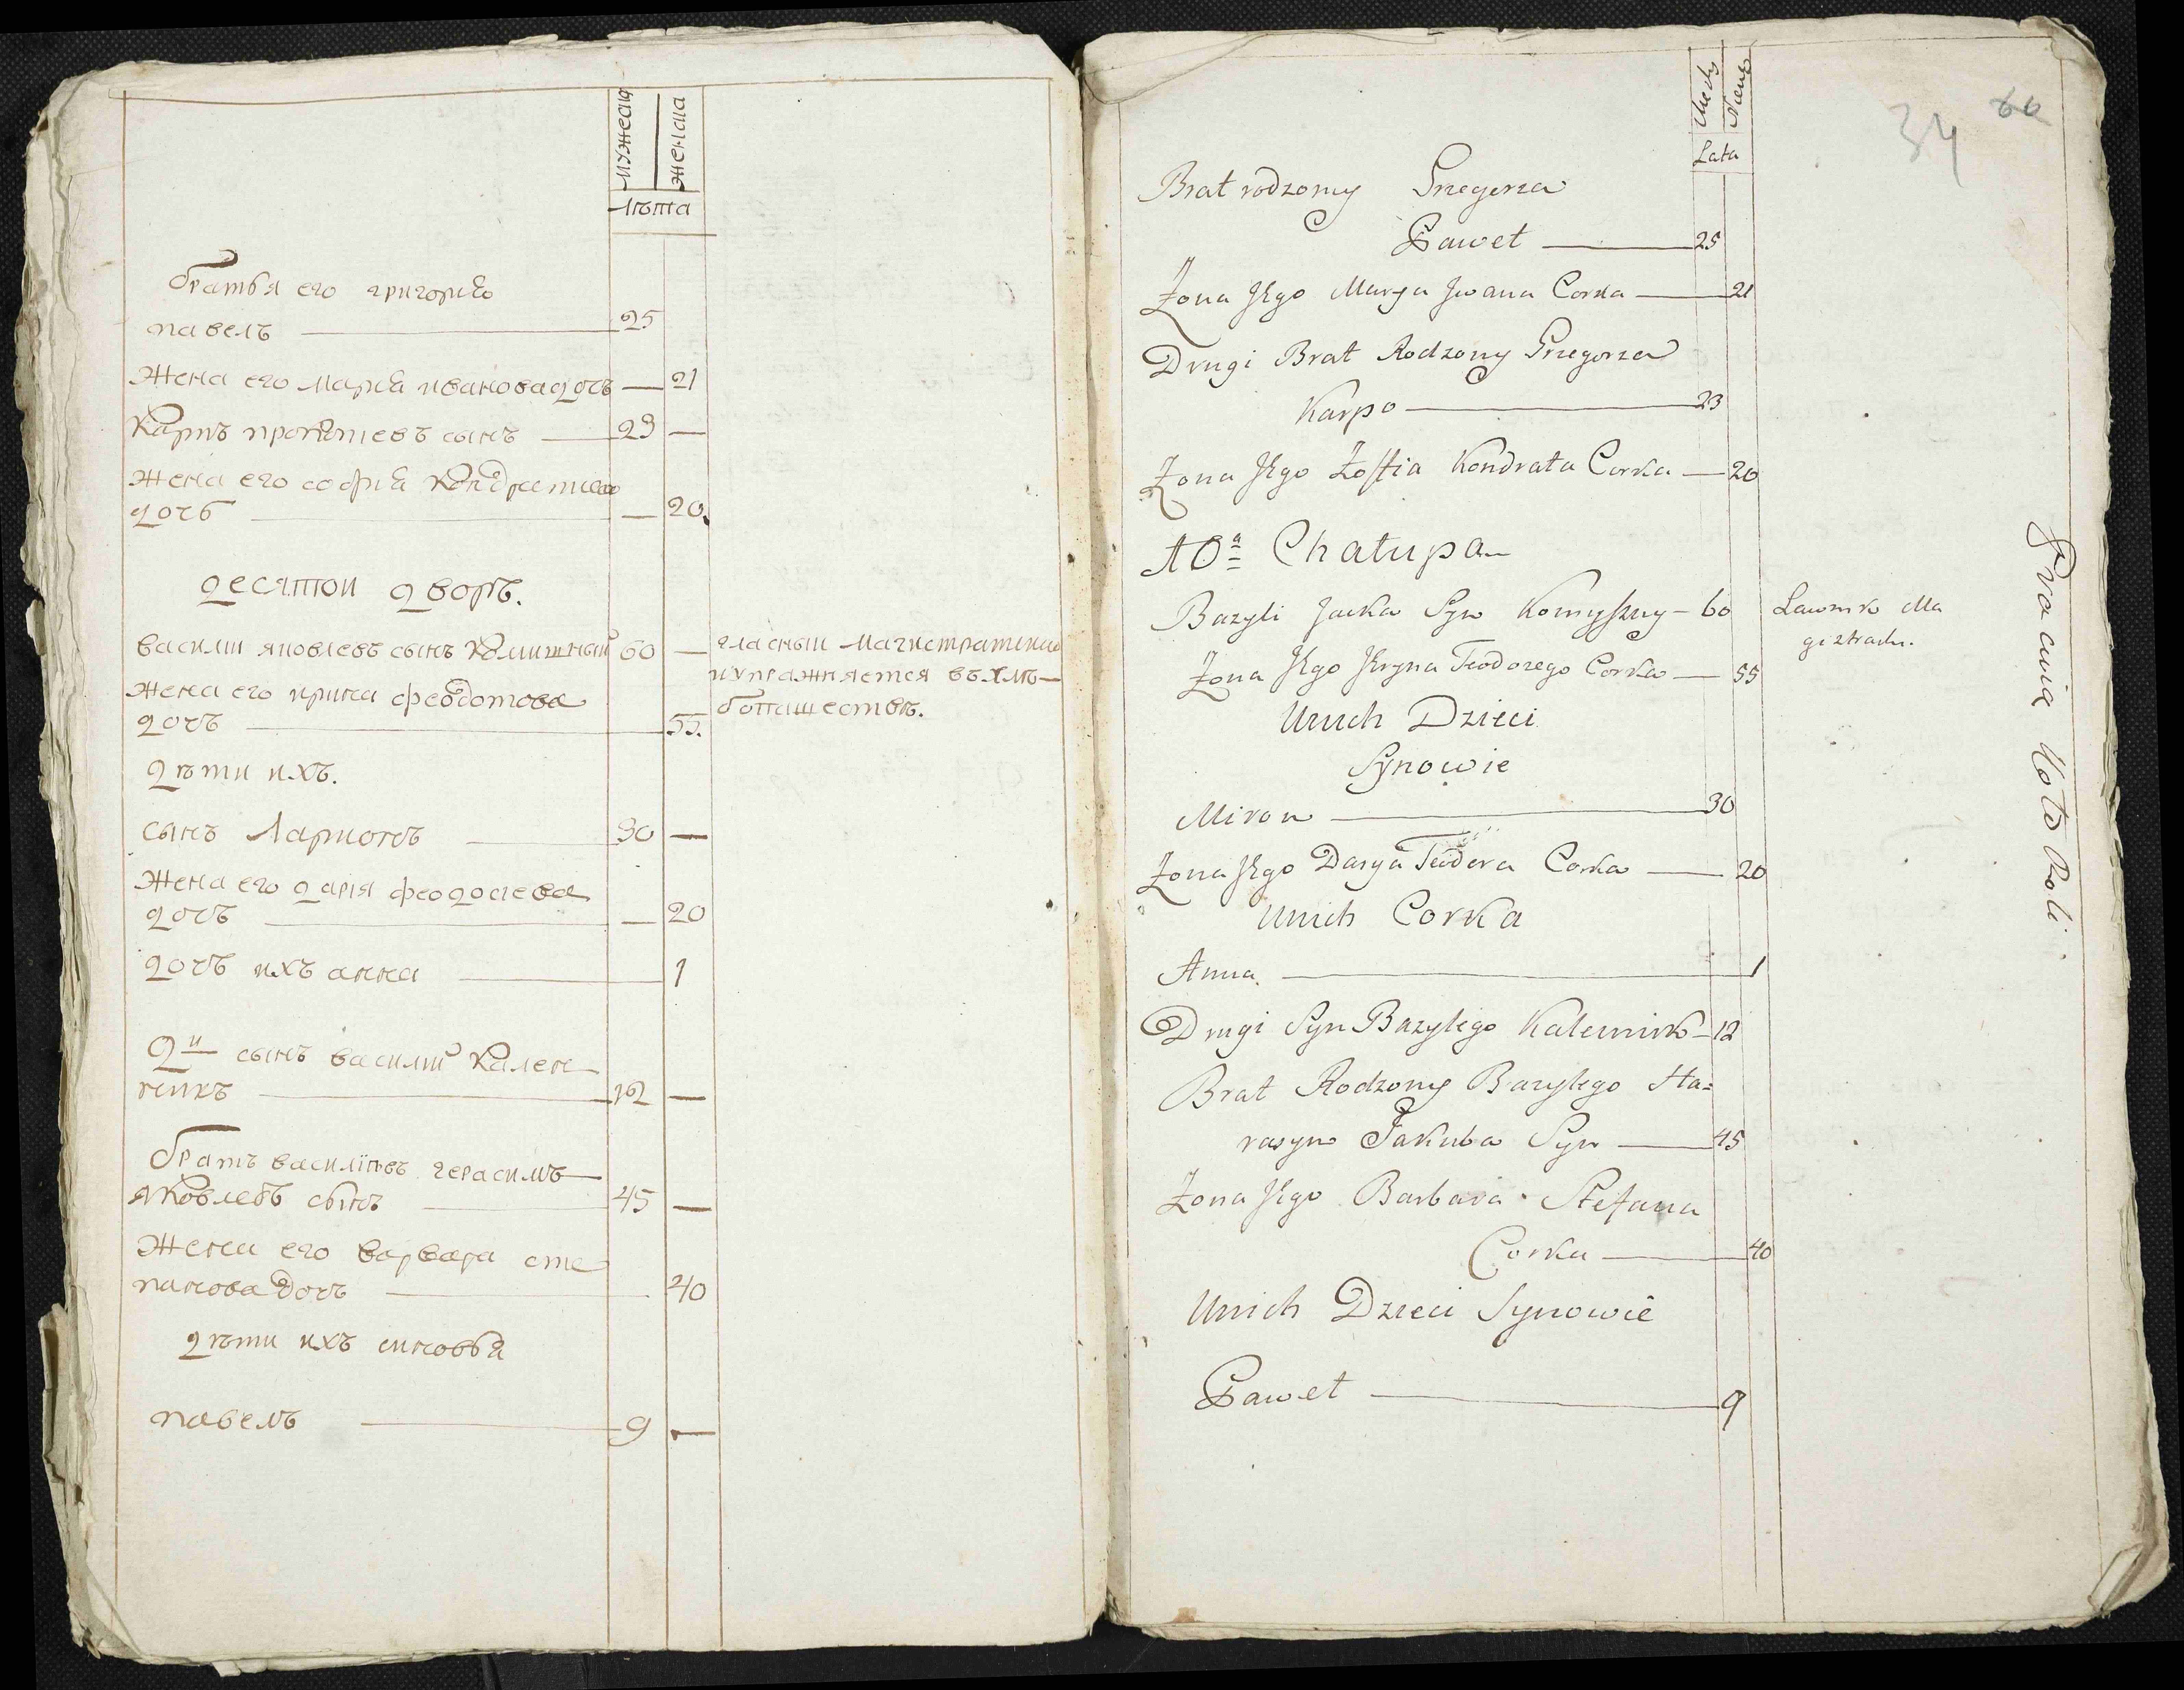 мужеска
женска
лѣта
братья его григорiя
павелъ 25
жена его марiя иванова дочь — 21
Карпъ прокопиевъ сынъ 23 —
жена его софiя Кондратиева
дочь — 20.
десятои дворъ.
василiи яковлевъ сынъ 60 — гласныи магистратскии
жена его ирина феодотова
упражняется въ хлѣ—
дочь 55. бопашествѣ.
дѣти ихъ.
сынъ Ларионъ 30 —
жена его дарiя феодосиева
дочь — 20
дочь ихъ анна 1
2й сынъ василиi Кален
никъ 12 —
братъ василiевъ герасимъ
яковлевъ сынъ 45 —
жена его варвара сте
панова дочь 40
дѣти ихъ синовья
павелъ 9 —
Lata
34
Brat rodzony Grzegorza
Paweł 25
Żona Jego Marya Jwana Corka 21
Drugi Brat Rodzony Grzegorza
Karpo 23
Żona Jego Zofia Kondrata Corka — 20
10a Chałupa
Bazyli Jacka Syn Komyszny — 60 Ławnik Ma
gistratu.
Żona Jego Jryna Teodorego Corka — 55
Unich Dzieci
Synowie
Miron 30
Żona Jego Darya Teodora Corka 20
Unich Corka
Anna. 1
Drugi Syn Bazylego Kalennik — 12
Brat Rodzony Bazylego Ha=
rasym Jakuba Syn 45
Żona Jego Barbara Stefana
Corka 40
Unich Dzieci Synowie
Paweł 9
Pracuia Koło Roli